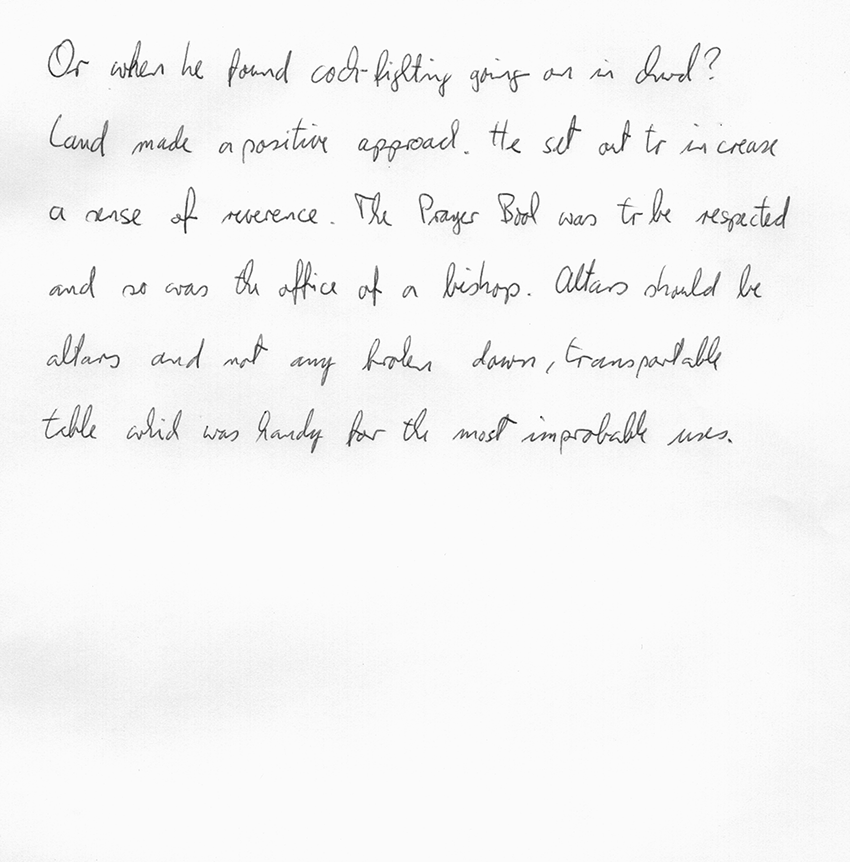 Or when he found cock-fighting going on in church?
Laud made a positive approach. He set out to increase
a sense of reverence. The Prayer Book was to be respected
and so was the office of a bishop. Altars should be
altars and not any broken down, transportable
table which was handy for the most improbable uses.